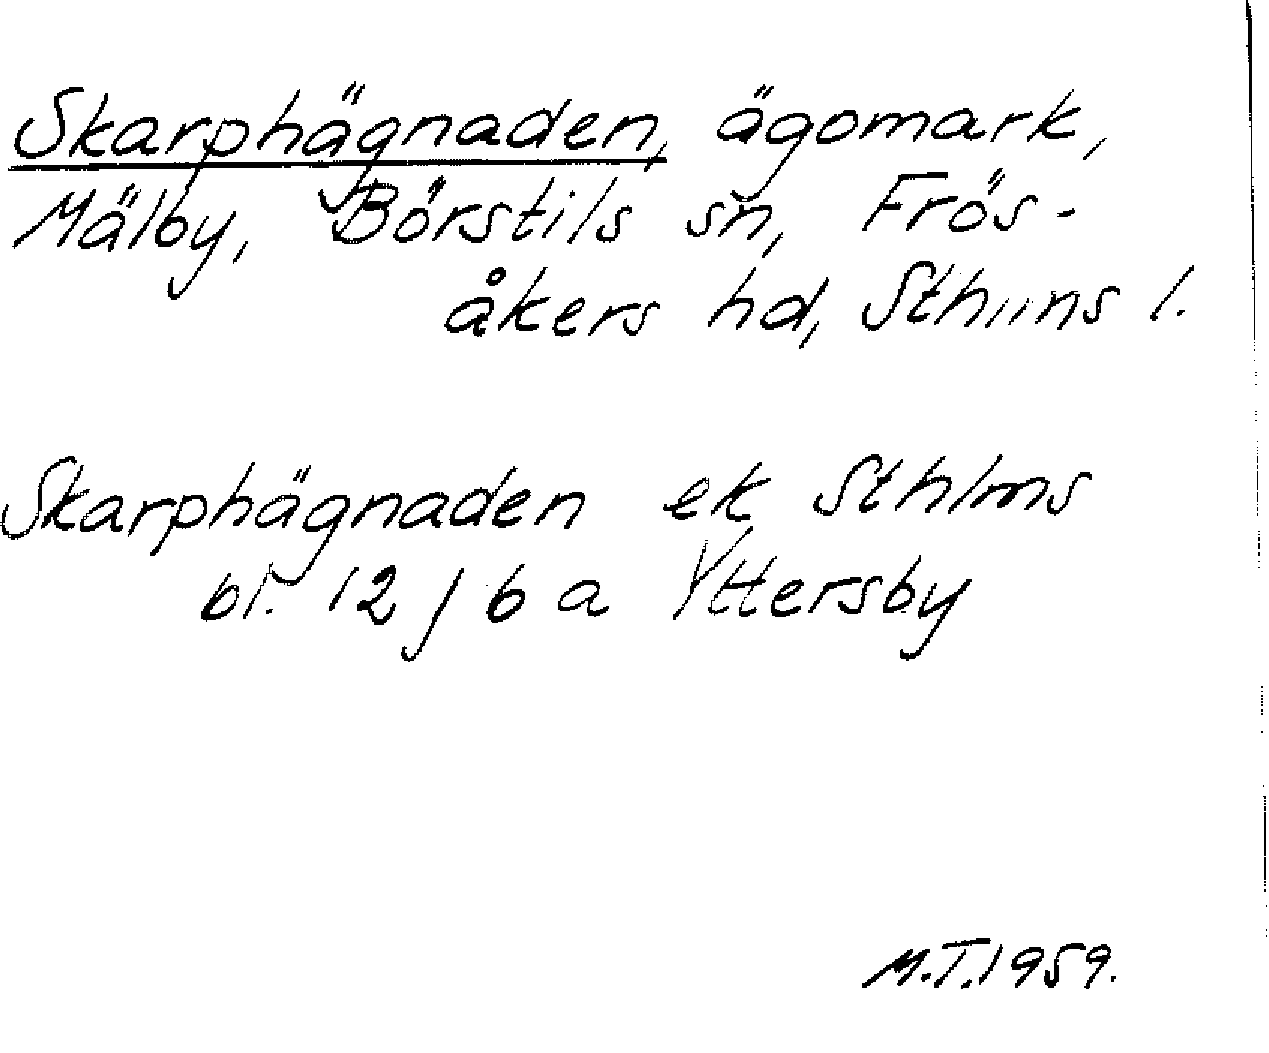 Skarphägnaden, ägomark,
Mälby, Börstils sn, Frös-
åkers hd, Sthlms l.
Skarphägnaden ek Sthlms
bl. 12 j 6 a Yttersby
M.T.1959.